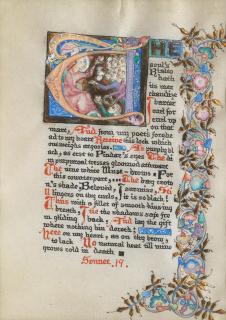 THE
soul's
Rialto
hath its
mer
chandize
I barter
curl for
curl up
on that
mart, And from my poet's forehe
ad to my heart Receive this lock which
outweighs argosies, As purply bl
ack, as erst to Pindar's eyes The di
m purpureal tresses gloomed athwart
The nine white Muse-brows. For
this counterpart, ... The bay crow
n's shade, Beloved, I surmise, Stil
l lingers on thy curl, it is so black!
Thus with a fillet of smooth kissing
breath, I tie the shadows safe fro
m gliding back, And lay the gift
where nothing hindereth;
Here on my heart, as on thy brow,
to lack No natural heat till mine
grows cold in death
Sonnet. 19.